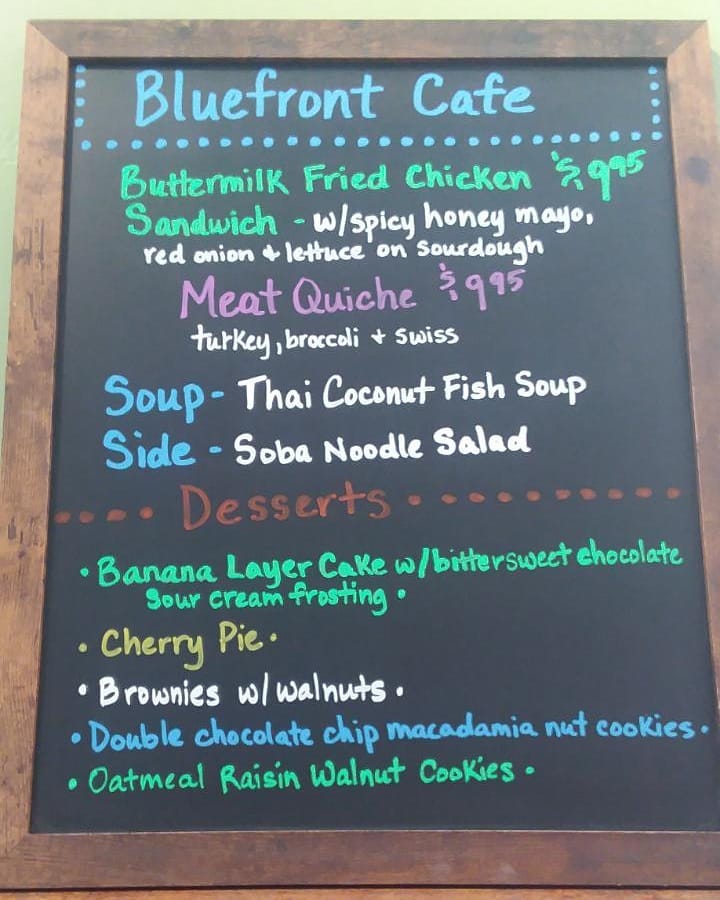 Bluefront Cafe
Buttermilk Fried Chicken $9.95
Sandwich - w/spicy honey mayo,
red onion & lettuce on sourdough
Meat Quiche $9.95
turkey, broccoli + swiss
Soup - Thai Coconut Fish Soup
Side - Soba Noodle Salad
Desserts
• Banana Layer Cake w/bittersweet chocolate
sour cream frosting •
• Cherry Pie •
• Brownies w/walnuts •
• Double chocolate chip macadamia nut cookies •
• Oatmeal Raisin Walnut Cookies •